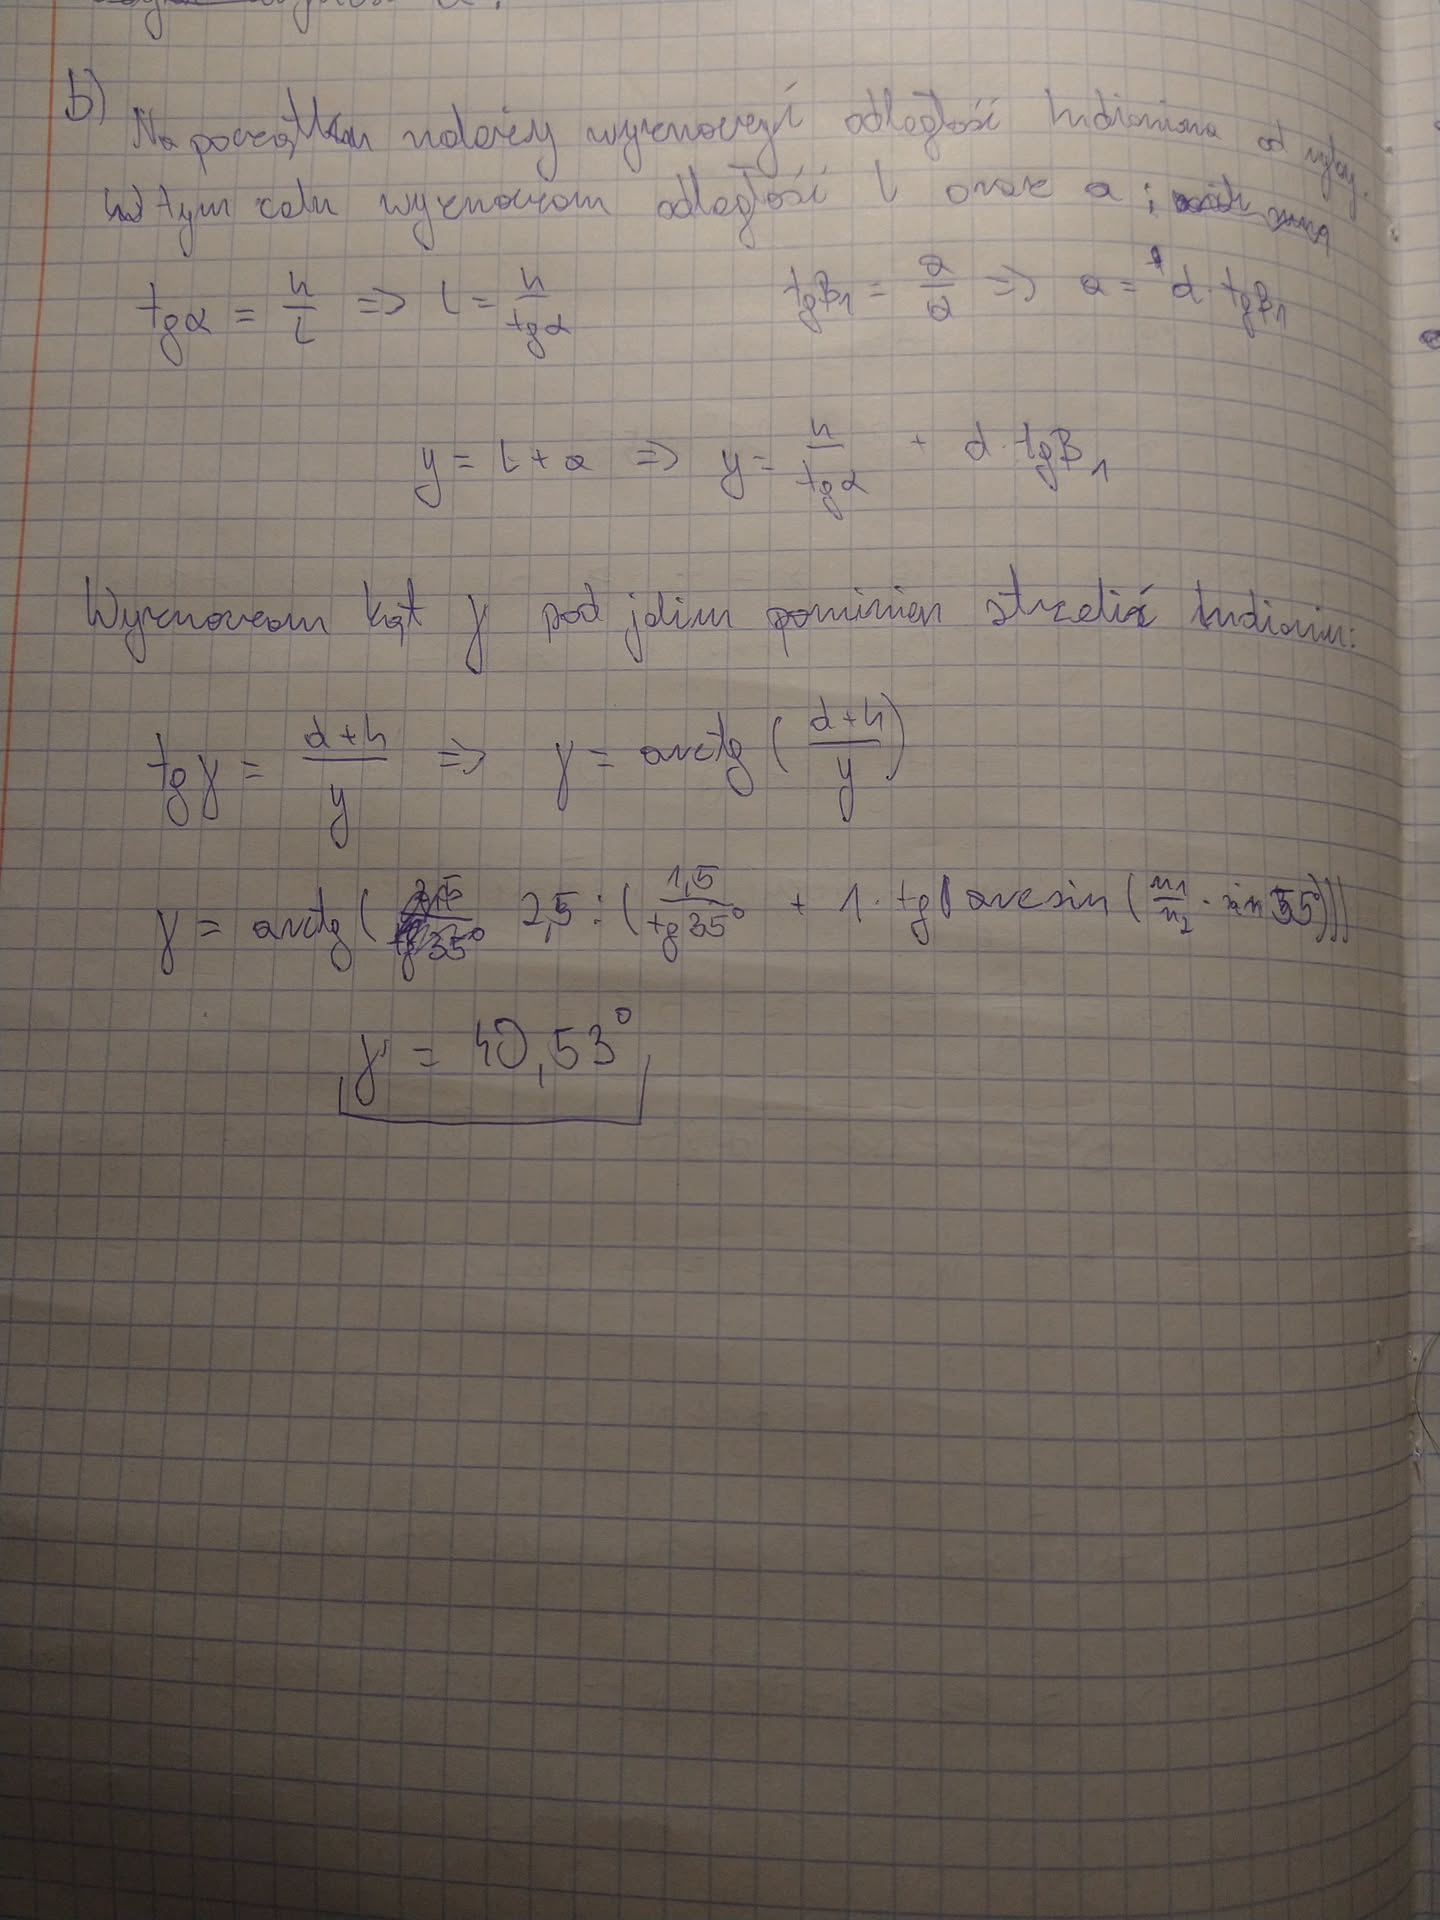 b)
Na początku należy wyznaczyć odległość Indianina od ryby.
W tym celu wyznaczam odległość l oraz a;
tgα = h/l => l = h/tgα tgβ₁ = a/d => a = d · tgβ₁
y = l + a => y = h/tgα + d · tgβ₁
Wyznaczam kąt γ pod jakim powinien strzelić Indianin:
tgγ = (d+h)/y => γ = arctg((d+h)/y)
γ = arctg( 2,5 : (1,5/tg35° + 1 · tg(arcsin(n₁/n₂ · sin 55°)))
γ = 40,53°